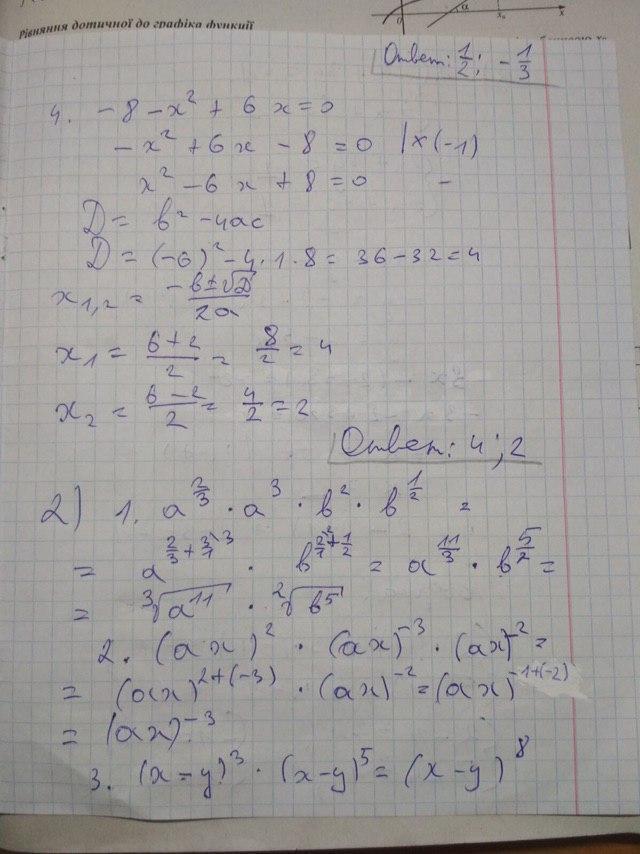 Рівняння дотичної до графіка функції
0 α x₀ x
Ответ: 1/2; -1/3
4. -8 - x² + 6x = 0
-x² + 6x - 8 = 0 | × (-1)
x² - 6x + 8 = 0 -
D = b² - 4ac
D = (-6)² - 4·1·8 = 36 - 32 = 4
x₁,₂ = (-b ± √D)/(2a)
x₁ = (6 + 2)/2 = 8/2 = 4
x₂ = (6 - 2)/2 = 4/2 = 2
Ответ: 4; 2
2) 1. a^(2/3) · a^3 · b^2 · b^(1/2) =
= a^(2/3 + 3/1 \3) · b^(2/1 \2 + 1/2) = a^(11/3) · b^(5/2) =
= ³√(a^11) · ²√(b^5)
2. (ax)^2 · (ax)^-3 · (ax)^-2 =
= (ax)^(2+(-3)) · (ax)^-2 = (ax)^(-1+(-2))
= (ax)^-3
3. (x - y)^3 · (x - y)^5 = (x - y)^8